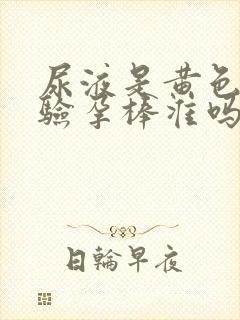 尿液是黄色
验孕棒准吗
日輪早夜